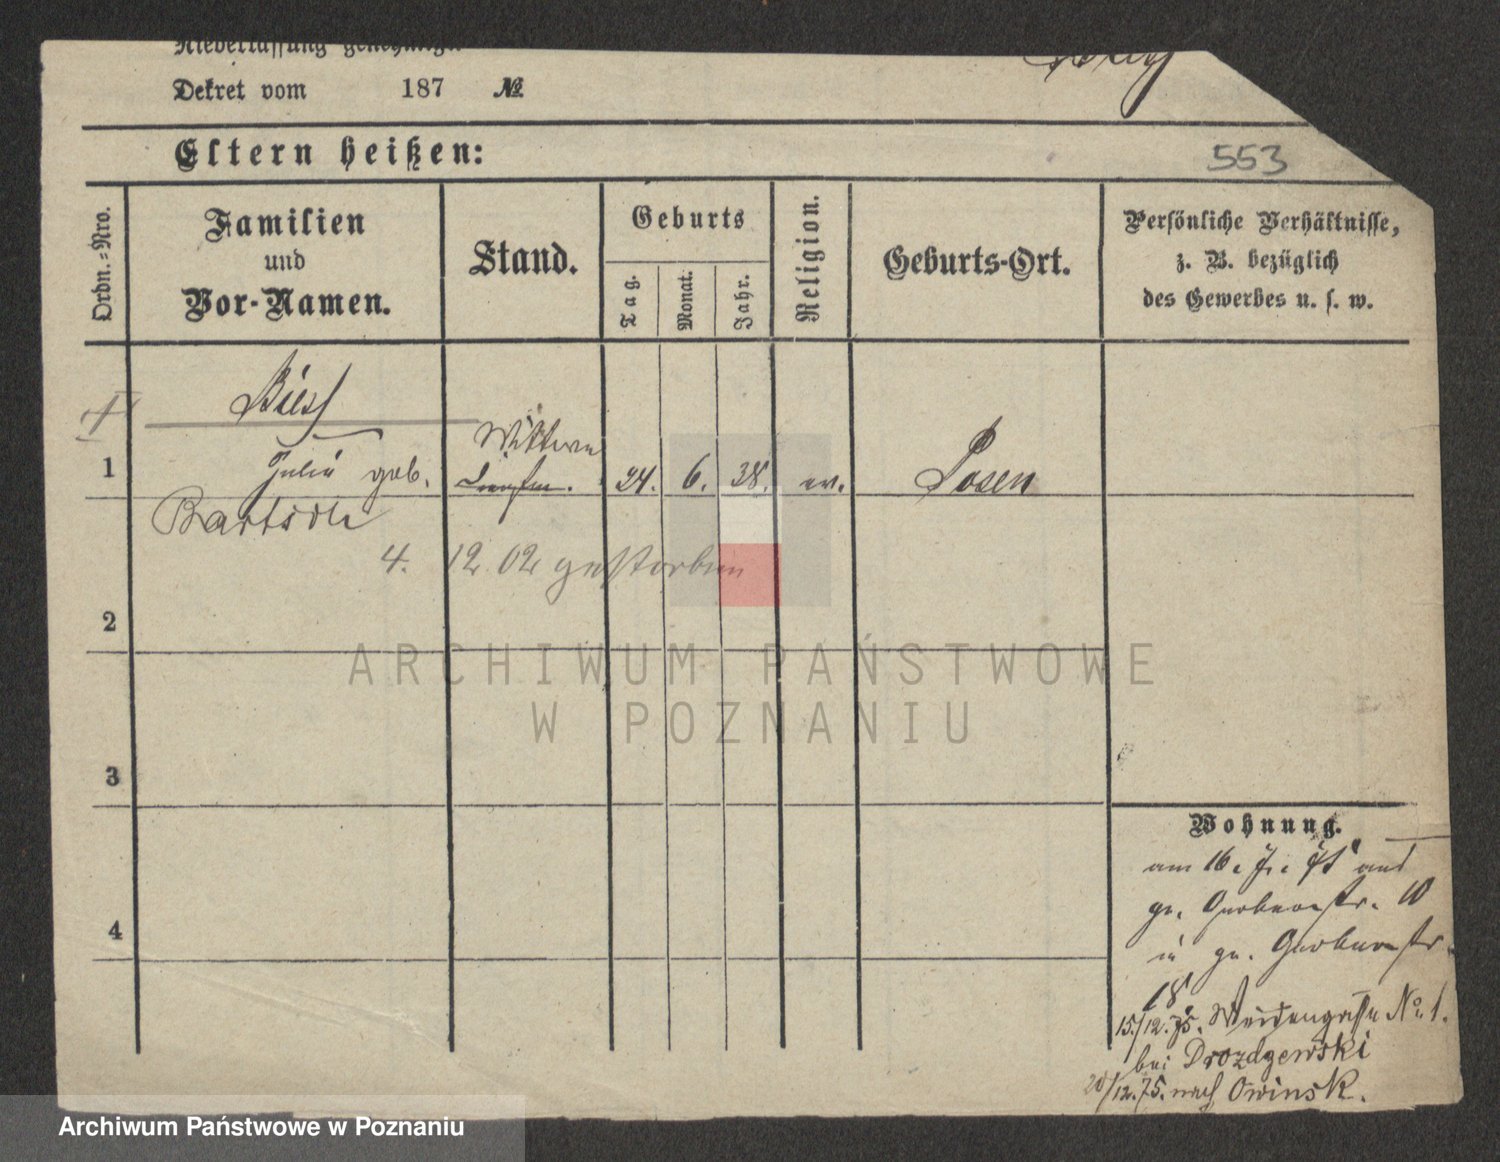 Niederlassung genehmigt
Dekret vom 187 №
Eltern heißen:
553
Ordn.=Nro.
Familien
und
Vor-Namen.
Stand.
Geburts
Tag.
Monat.
Jahr.
Religion.
Geburts-Ort.
Persönliche Verhältnisse,
z. B. bezüglich
des Gewerbes u. s. w.
1
Julie geb.
Bartsch
Wittwe
24. 6. 38. ev. Posen
4. 12 02 gestorben
2
ARCHIWUM PAŃSTWOWE
W POZNANIU
3
4
Wohnung.
am 16. aus
gr. Gerberstr. 10
in gr. Gerberstr.
18.
15/12. 75. Weidengasse No 1.
bei Drozdzewski
20/12. 75. nach Owinsk.
Archiwum Państwowe w Poznaniu